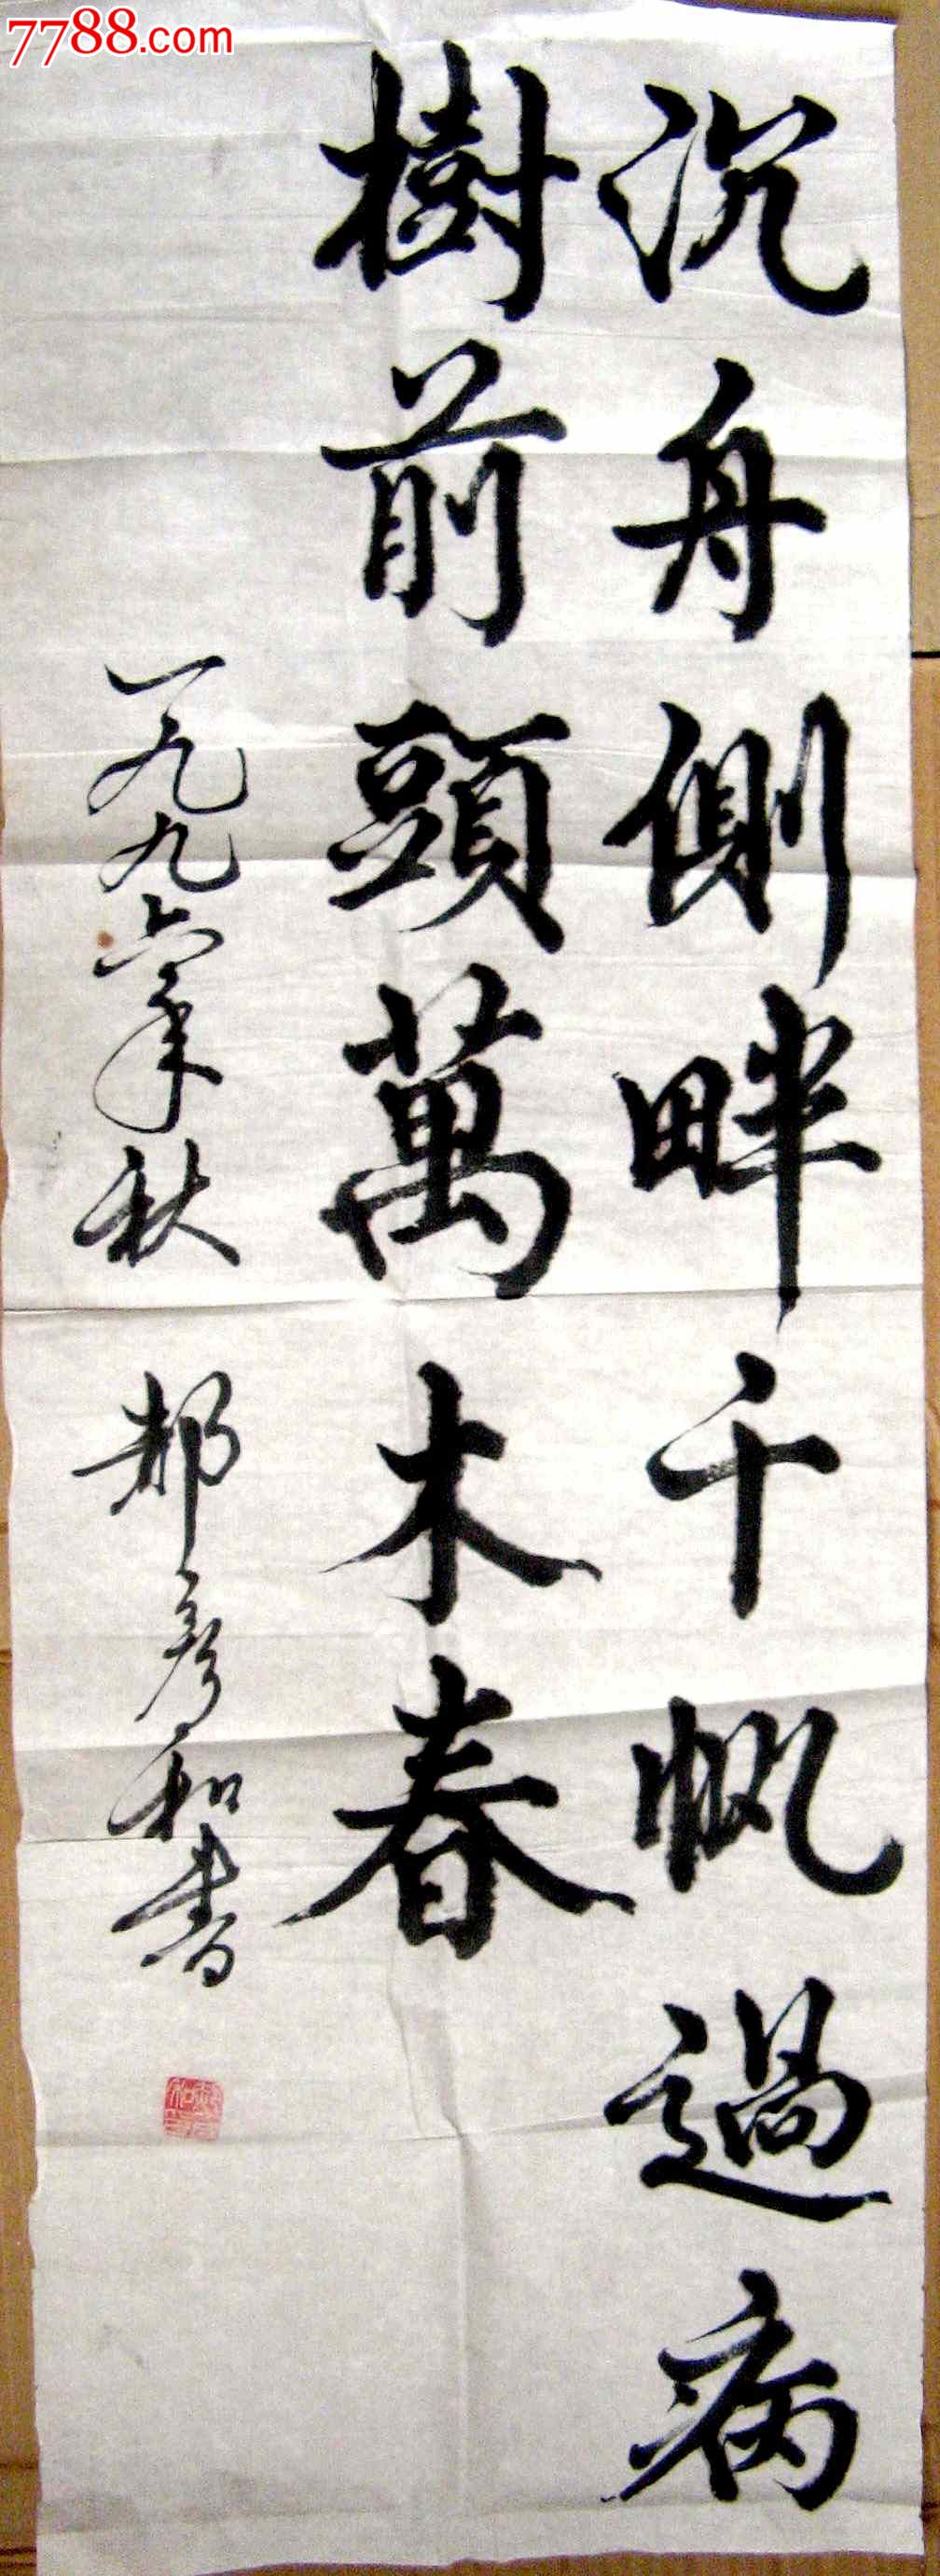 7788.com
沉舟側畔千帆過病
樹前頭萬木春
一九九六年秋
郝彦和書